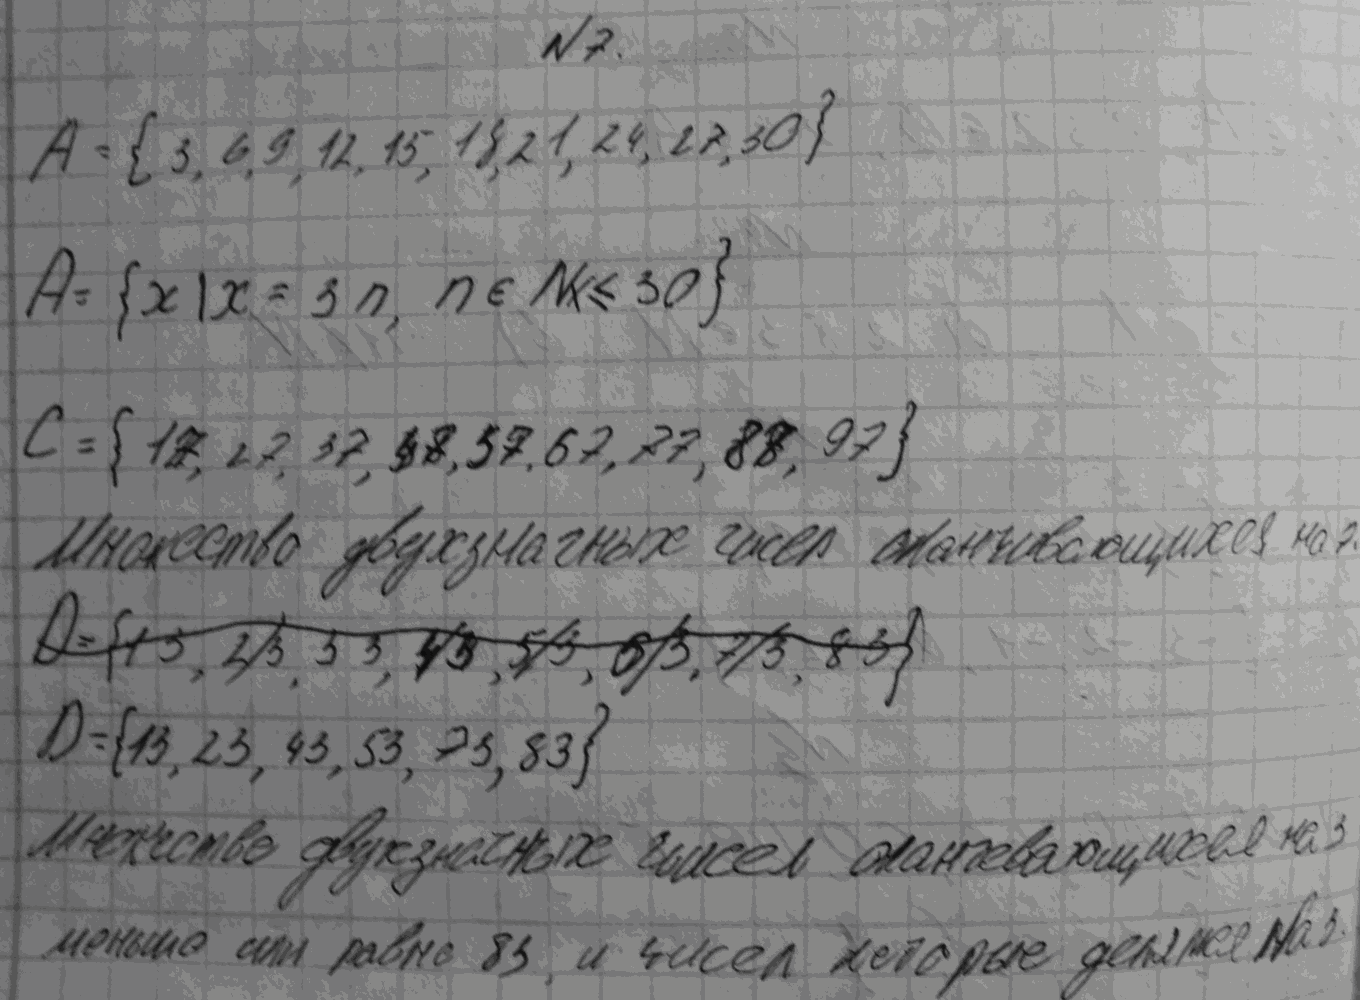 N7.
A = {3, 6, 9, 12, 15, 18, 21, 24, 27, 30}
A = {x | x = 3n, n ∈ N ≤ 30}
C = {17, 27, 37, 57, 67, 77, 97}
Множество двухзначных чисел оканчивающихся на 7.
D = {13, 23, 33, 43, 53, 63, 73, 83}
D = {13, 23, 43, 53, 73, 83}
Множество двухзначных чисел оканчивающихся на 3
меньше или равно 83, и чисел которые на 3.